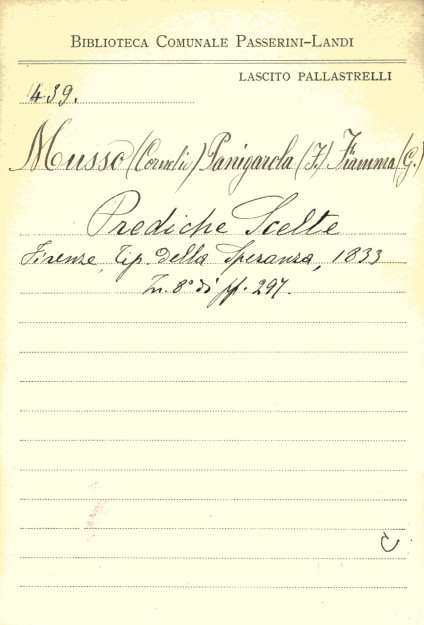 BIBLIOTECA COMUNALE PASSERINI-LANDI
LASCITO PALLASTRELLI
439.
Musso (Cornelio) Panigarola (F.) Fiamma (G.)
Prediche Scelte
Firenze, Tip. della Speranza, 1833
In. 8° di pp. 297.